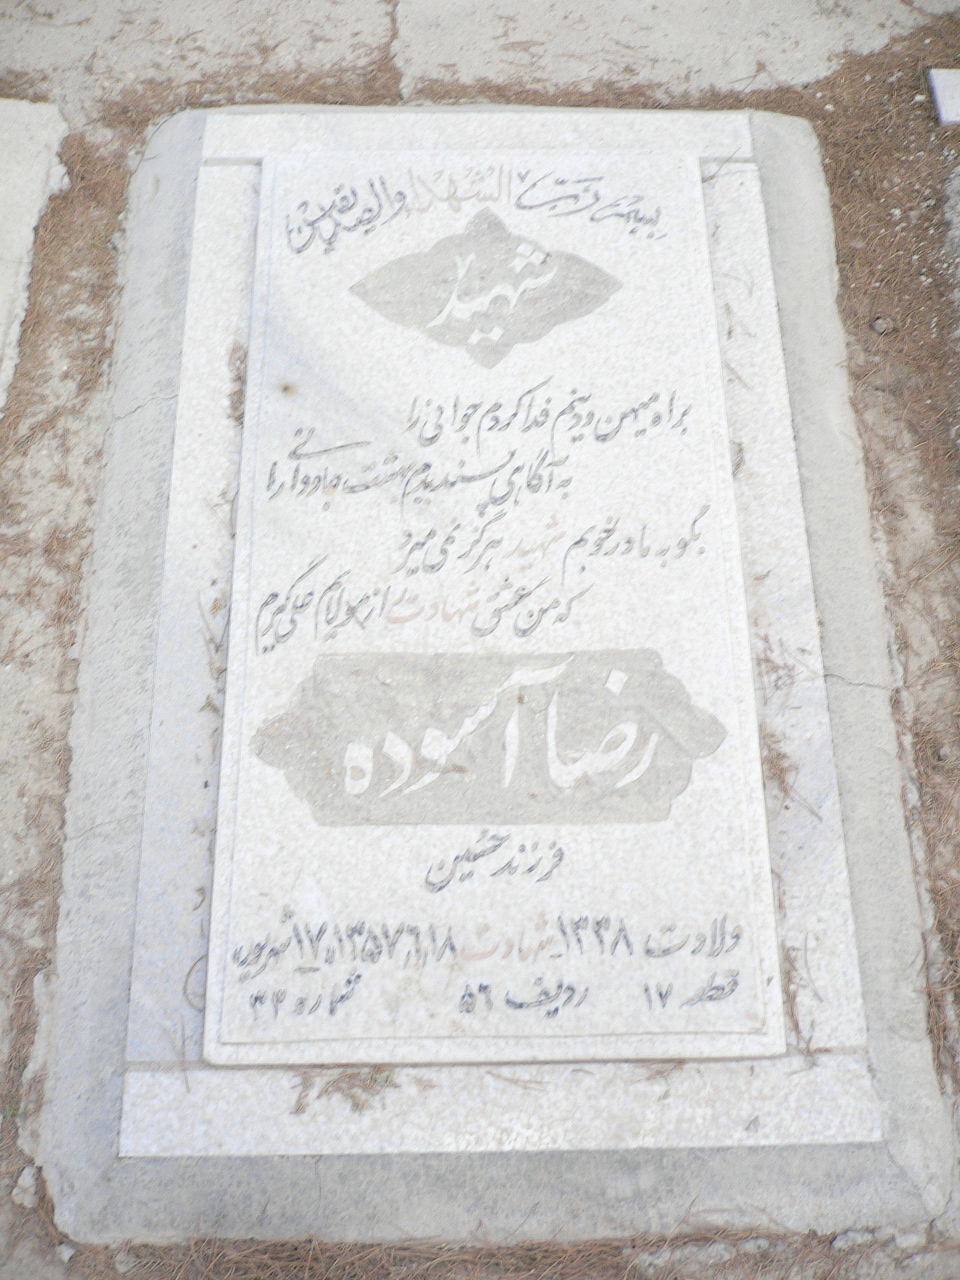 بسم رب الشهدا والصدیقین
شهید
براه میهن و دینم فدا کردم جوانی را
به آگاهی پسندیدم بهشت جاودانی را
بگو به مادر خوبم شهید هرگز نمی میرد
که من عشق شهادت را از مولایم علی گیرم
رضا آسوده
فرزند حسین
ولادت ۱۳۳۸ شهادت ۱۳۵۷،۶،۱۸ ۱۷ شهریور
قطعه ۱۷ ردیف ۵۶ شماره ۳۴